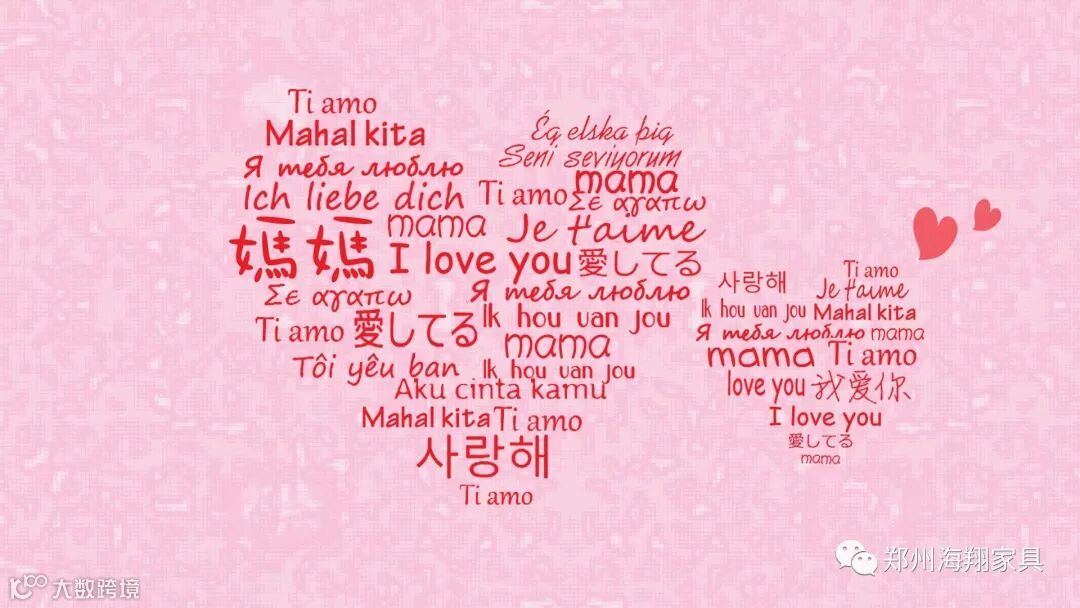 Ti amo
Mahal kita
Я тебя люблю
Ich liebe dich
媽媽
Σε αγαπω
Ti amo
Tôi yêu bạn
Ég elska þig
Seni seviyorum
Ti amo
mama
Σε αγαπω
mama
Je t'aime
I love you
愛してる
Я тебя люблю
愛してる
Ik hou van jou
mama
Ik hou van jou
Aku cinta kamu
Mahal kita
Ti amo
사랑해
Ti amo
사랑해
Ti amo
Je t'aime
Ik hou van jou
Mahal kita
Я тебя люблю
mama
mama
Ti amo
love you
我爱你
I love you
愛してる
mama
郑州海翔家具
大数跨境